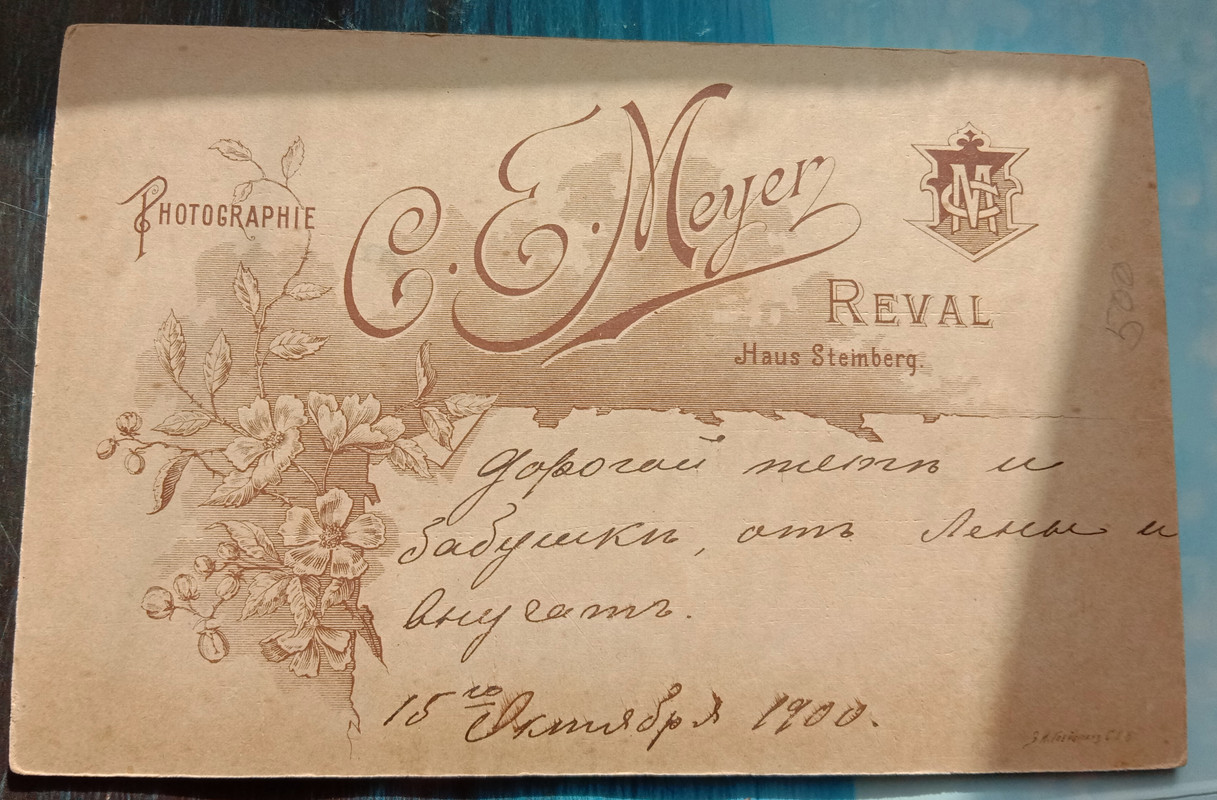 PHOTOGRAPHIE
C. E. Meyer
REVAL
Haus Steinberg.
500
Дорогой тетѣ и
бабушкѣ, отъ Лены и
внучатъ.
15го Октября 1900.